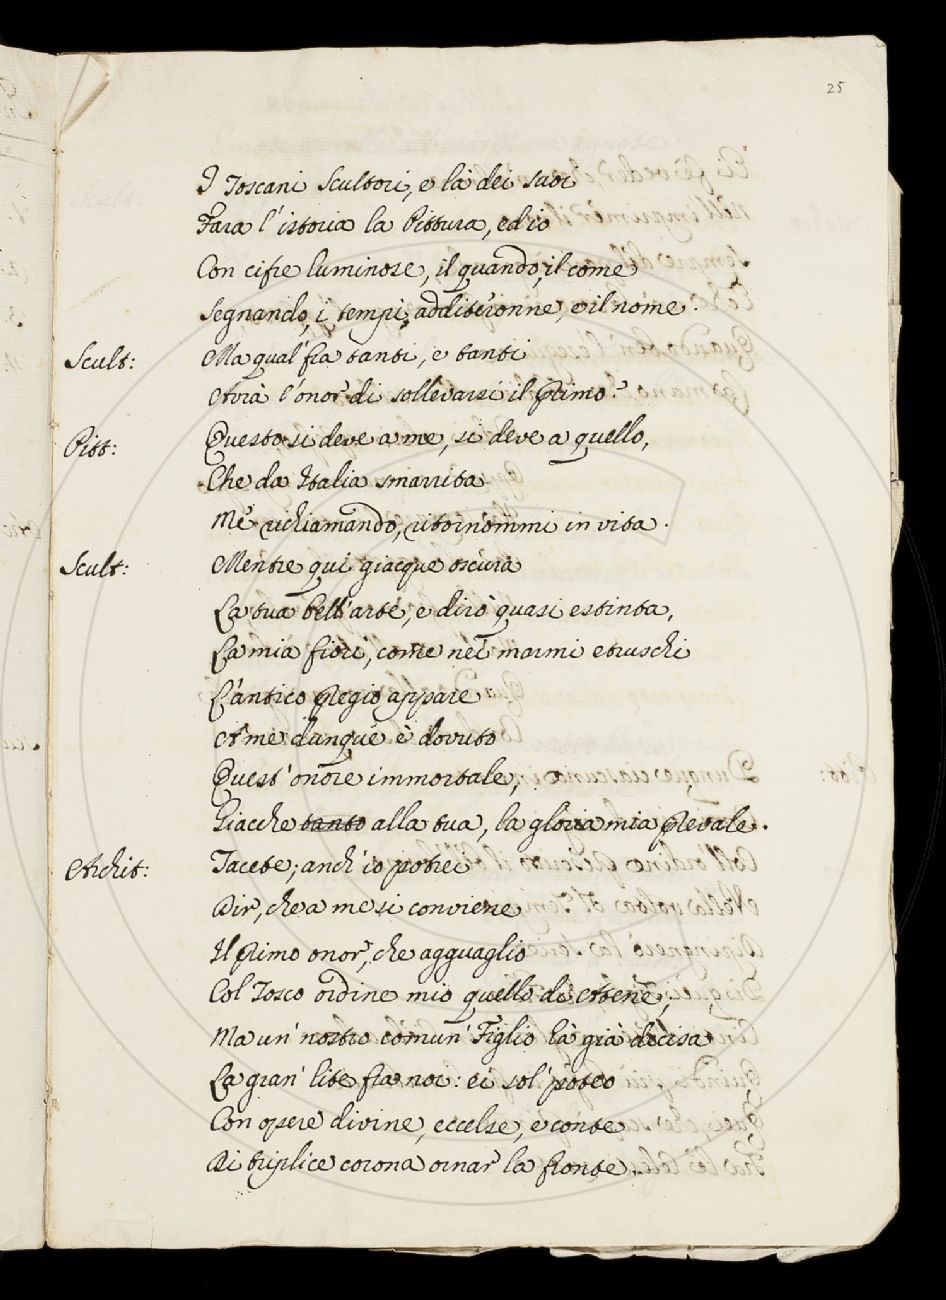 25
I Toscani Scultori, e là dei suoi
Farà l'istoria la Pittura, ed io
Con cifre luminose, il quando, il come
Segnando, i tempi, additeronne, e il nome.
Scult: Ma qual fra tanti, e tanti
Avrà l'onor di sollevarsi il primo?
Pitt: Questo si deve a me, si deve a quello,
Che da Italia smarrita
Me richiamando, ritornommi in vita.
Scult: Mentre qui giacque oscura
La tua bell'arte, e dirò quasi estinta,
La mia fiorì, come nei marmi etruschi
L'antico pregio appare
A me dunque è dovuto
Quest'onore immortale,
Giacche tanto alla tua, la gloria mia prevale.
Archit: Tacete; anch'io potrei
Dir, che a me si conviene
Il primo onor, che agguaglio
Col Tosco ordine mio quello di Atene,
Ma un' nostro comun' Figlio ha già decisa
La gran' lite fra noi: ei sol' poteo
Con opere divine, eccelse, e conte
Di triplice corona ornar la fronte.